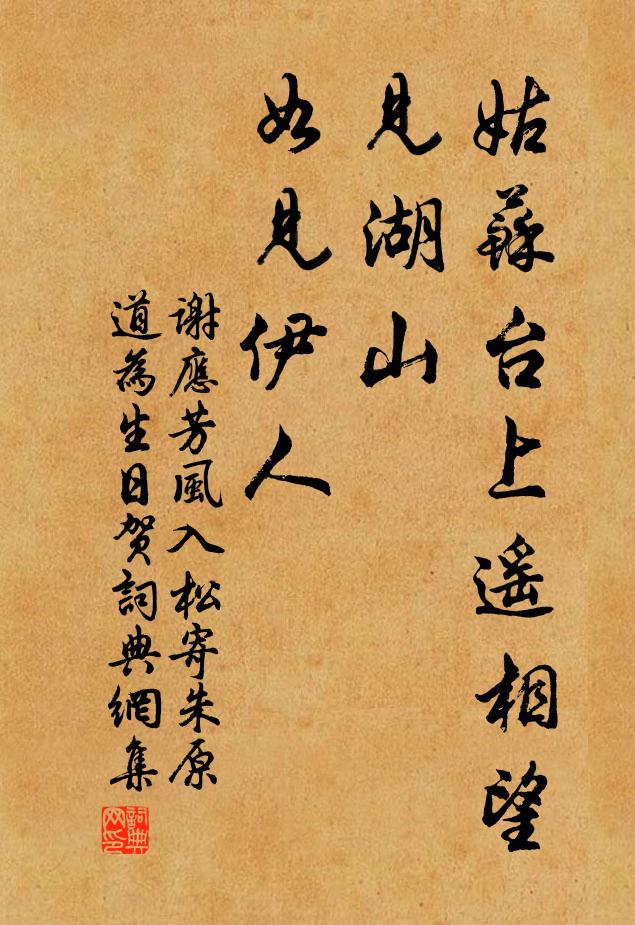 姑蘇台上遥相望
見湖山
如見伊人
謝應芳風入松寄朱原
道為生日賀詞典網集
詞典网印